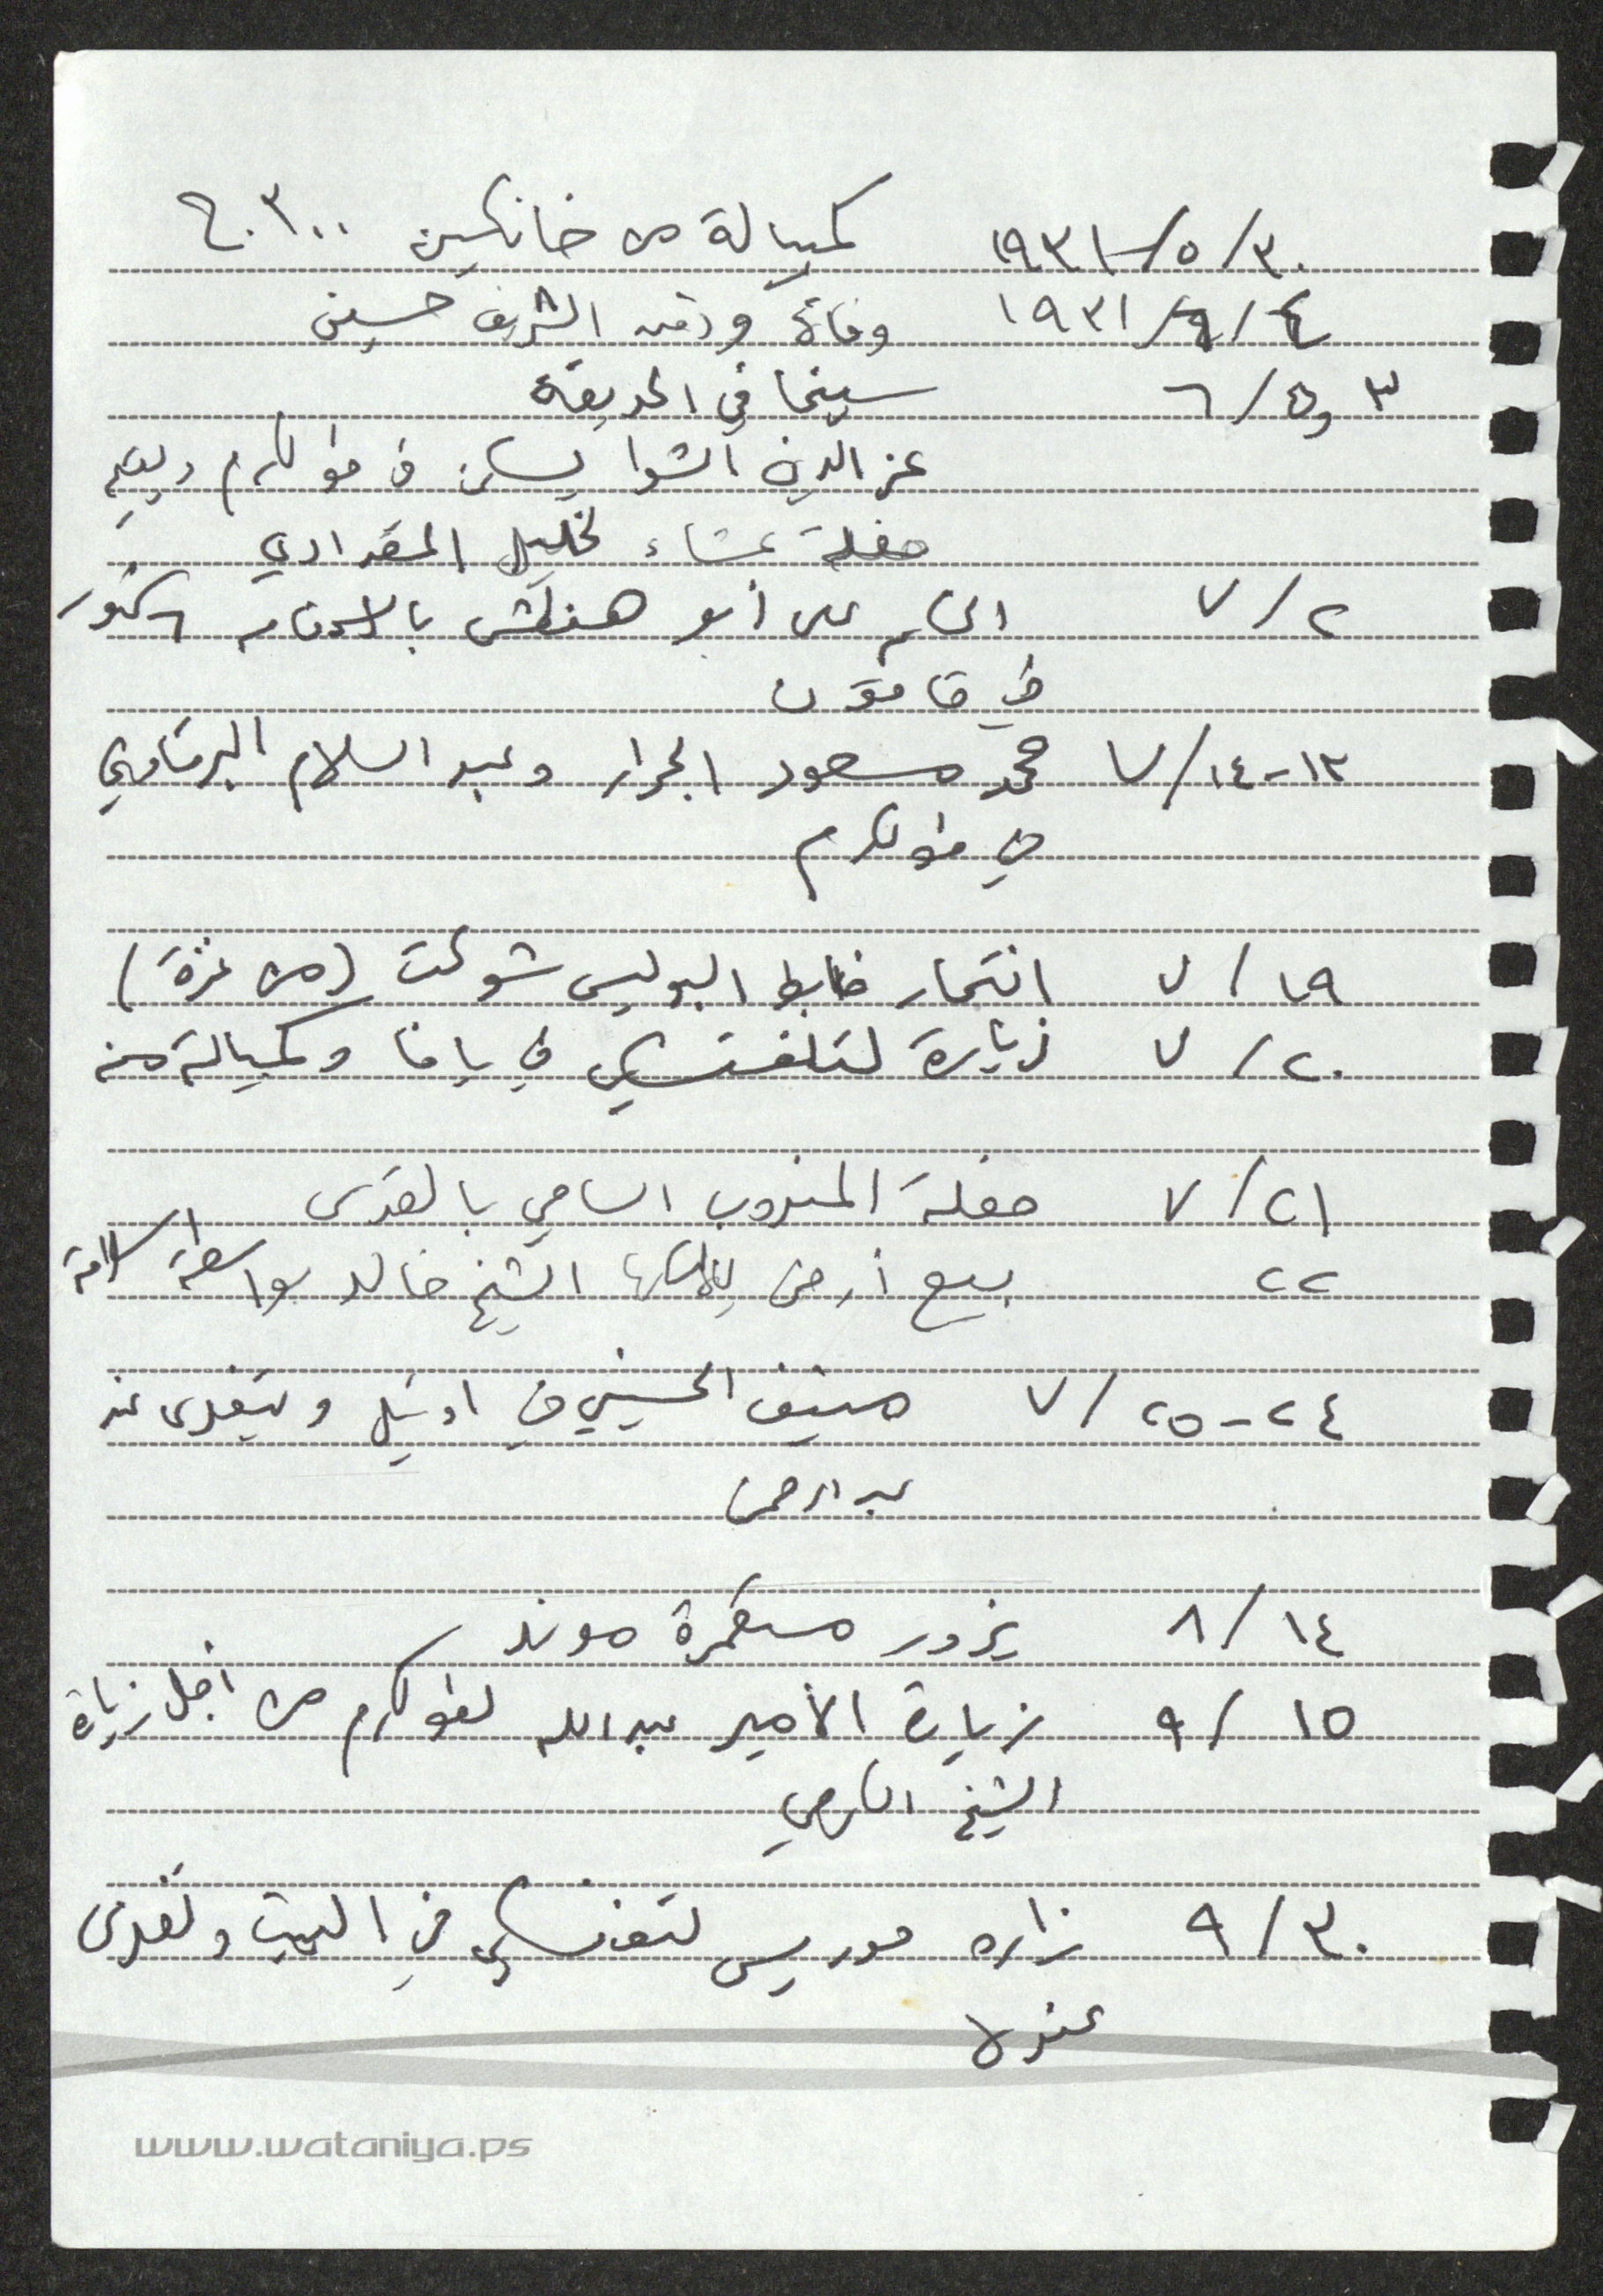 ١٩٣١/٥/٣٠ كمبيالة من خانكين ٣٠٠ ج.
١٩٣١/٦/٤ وفاة ودفن الشريف حسين
٣ و٥/٦ سينما في الحديقة
عز الدين الشوا يسكن في طولكرم ويقيم
حفلة عشاء لخليل المقدادي
٧/٢ الحكم على أبو هنطش بالاعدام
في قاقون
١٣-٧/١٤ محمد مسعود الجرار وعبد السلام البرقاوي
في طولكرم
٧/١٩ انتحار ضابط البوليس شوكت (من غزة)
٧/٢٠ زيارة لتلفتسكي في يافا وكمبيالة منه
٧/٢١ حفلة المندوب السامي بالقدس
٢٢ بيع أرض الشيخ خالد بواسطة سلامة
٢٤-٧/٢٥ منيف الحسيني في اوتيل ويتغدى عند
عبد الرحمن
٨/١٤ يزور مستعمرة موند
٩/١٥ زيارة الأمير عبدالله لطولكرم من أجل زيارة
الشيخ الكرمي
٩/٣٠ زاره موريس لتفنسكي في البيت وتغدى
عنده
www.wataniya.ps